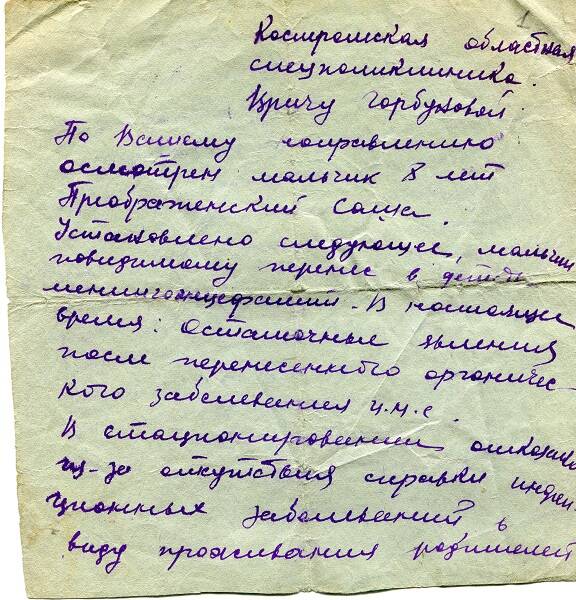 1
Костромская областная
спецполиклиника.
Врачу Горбуновой.
По Вашему направлению
осмотрен мальчик 8 лет
Преображенский Саша.
Установлено следующее, мальчик
повидимому перенес в детст
менингоэнцефалит. В настоящее
время: Остаточные явления
после перенесенного органичес-
кого заболевания ц.н.с.
В стационировании отказано
из-за отсутствия справки инфек-
ционных заболеваний в
виду проживания родителей